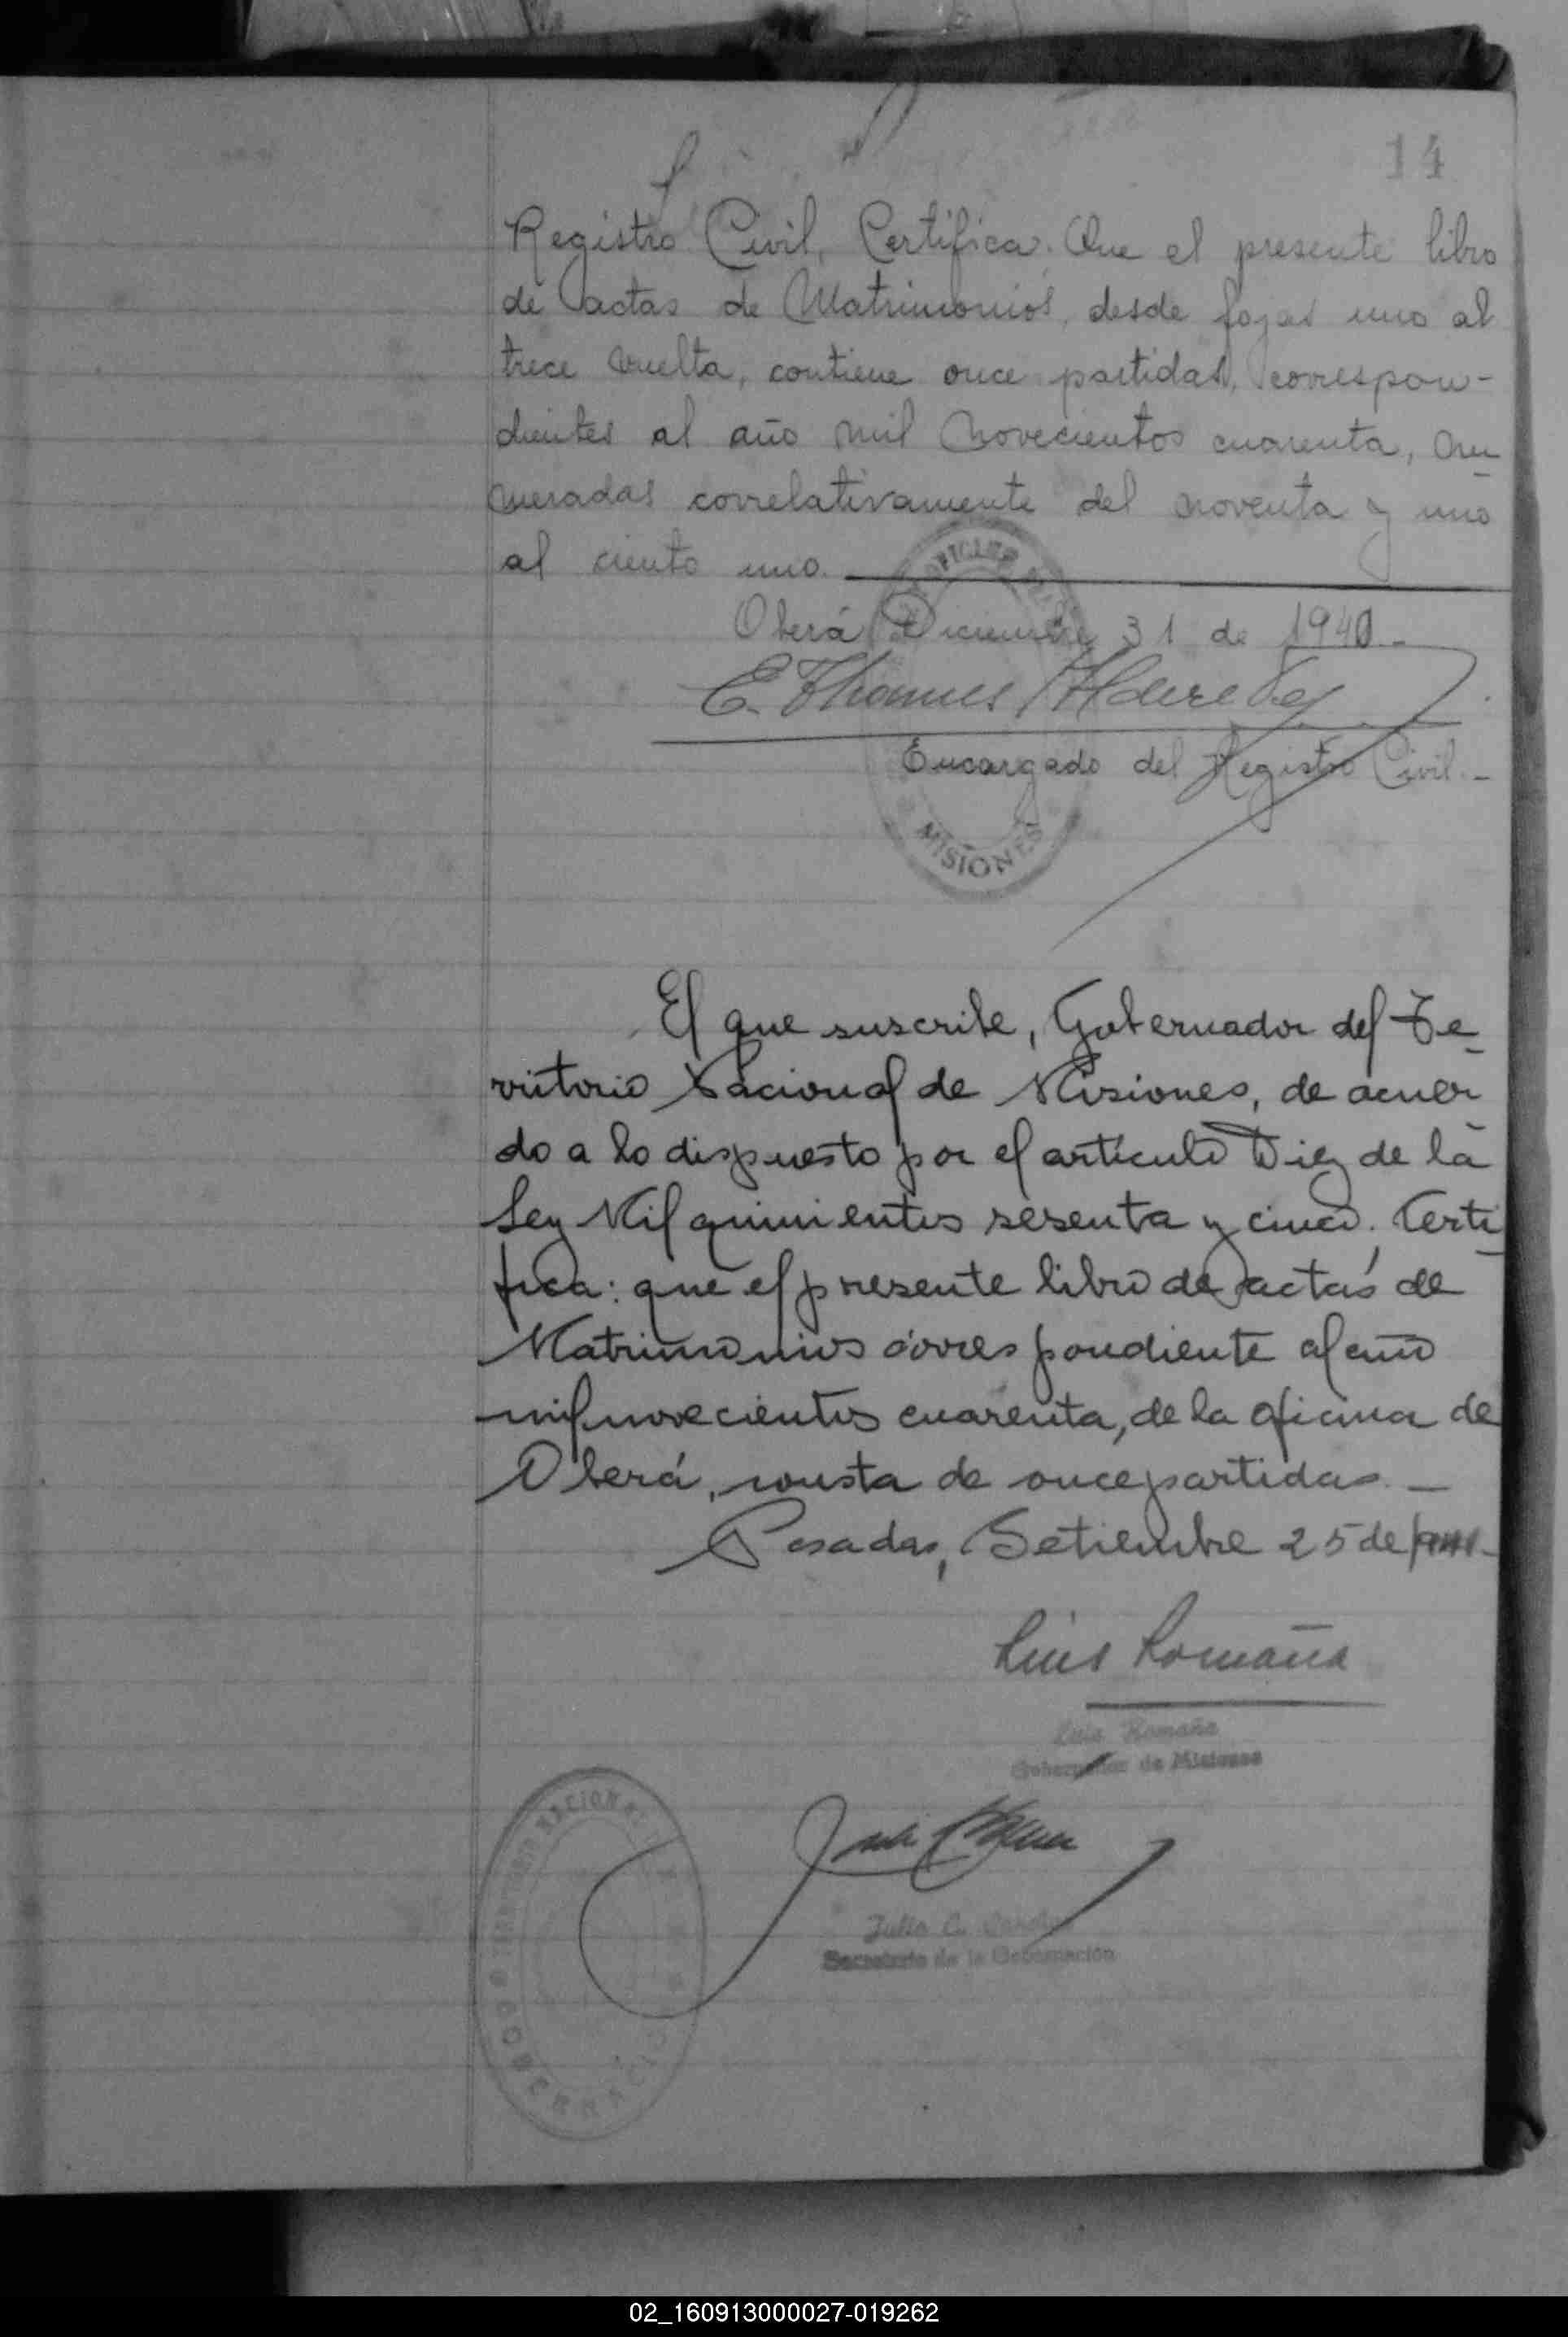 14
Registro Civil, Certifica. Que el presente libro
de actas de Matrimonios, desde fojas uno al
trece vuelta, contiene once partidas, correspon-
dientes al año mil novecientos cuarenta, nu-
meradas correlativamente del noventa y uno
al ciento uno.
Oberá Diciembre 31 de 1940.-
E. Thomas
Encargado del Registro Civil.-
MISIONES
El que suscribe, Gobernador del Te-
rritorio Nacional de Misiones, de acuer-
do a lo dispuesto por el artículo Diez de la
Ley Mil quinientos sesenta y cinco. Certi-
fica: que el presente libro de actas de
Matrimonios correspondiente al año
mil novecientos cuarenta, de la oficina de
Oberá, consta de once partidas. —
Posadas, Setiembre 25 de 1941-
Luis Romaña
Luis Romaña
Gobernador de Misiones
TERRITORIO NACIONAL
GOBERNACION
Julio C.
Secretario de la Gobernación
02_160913000027-019262